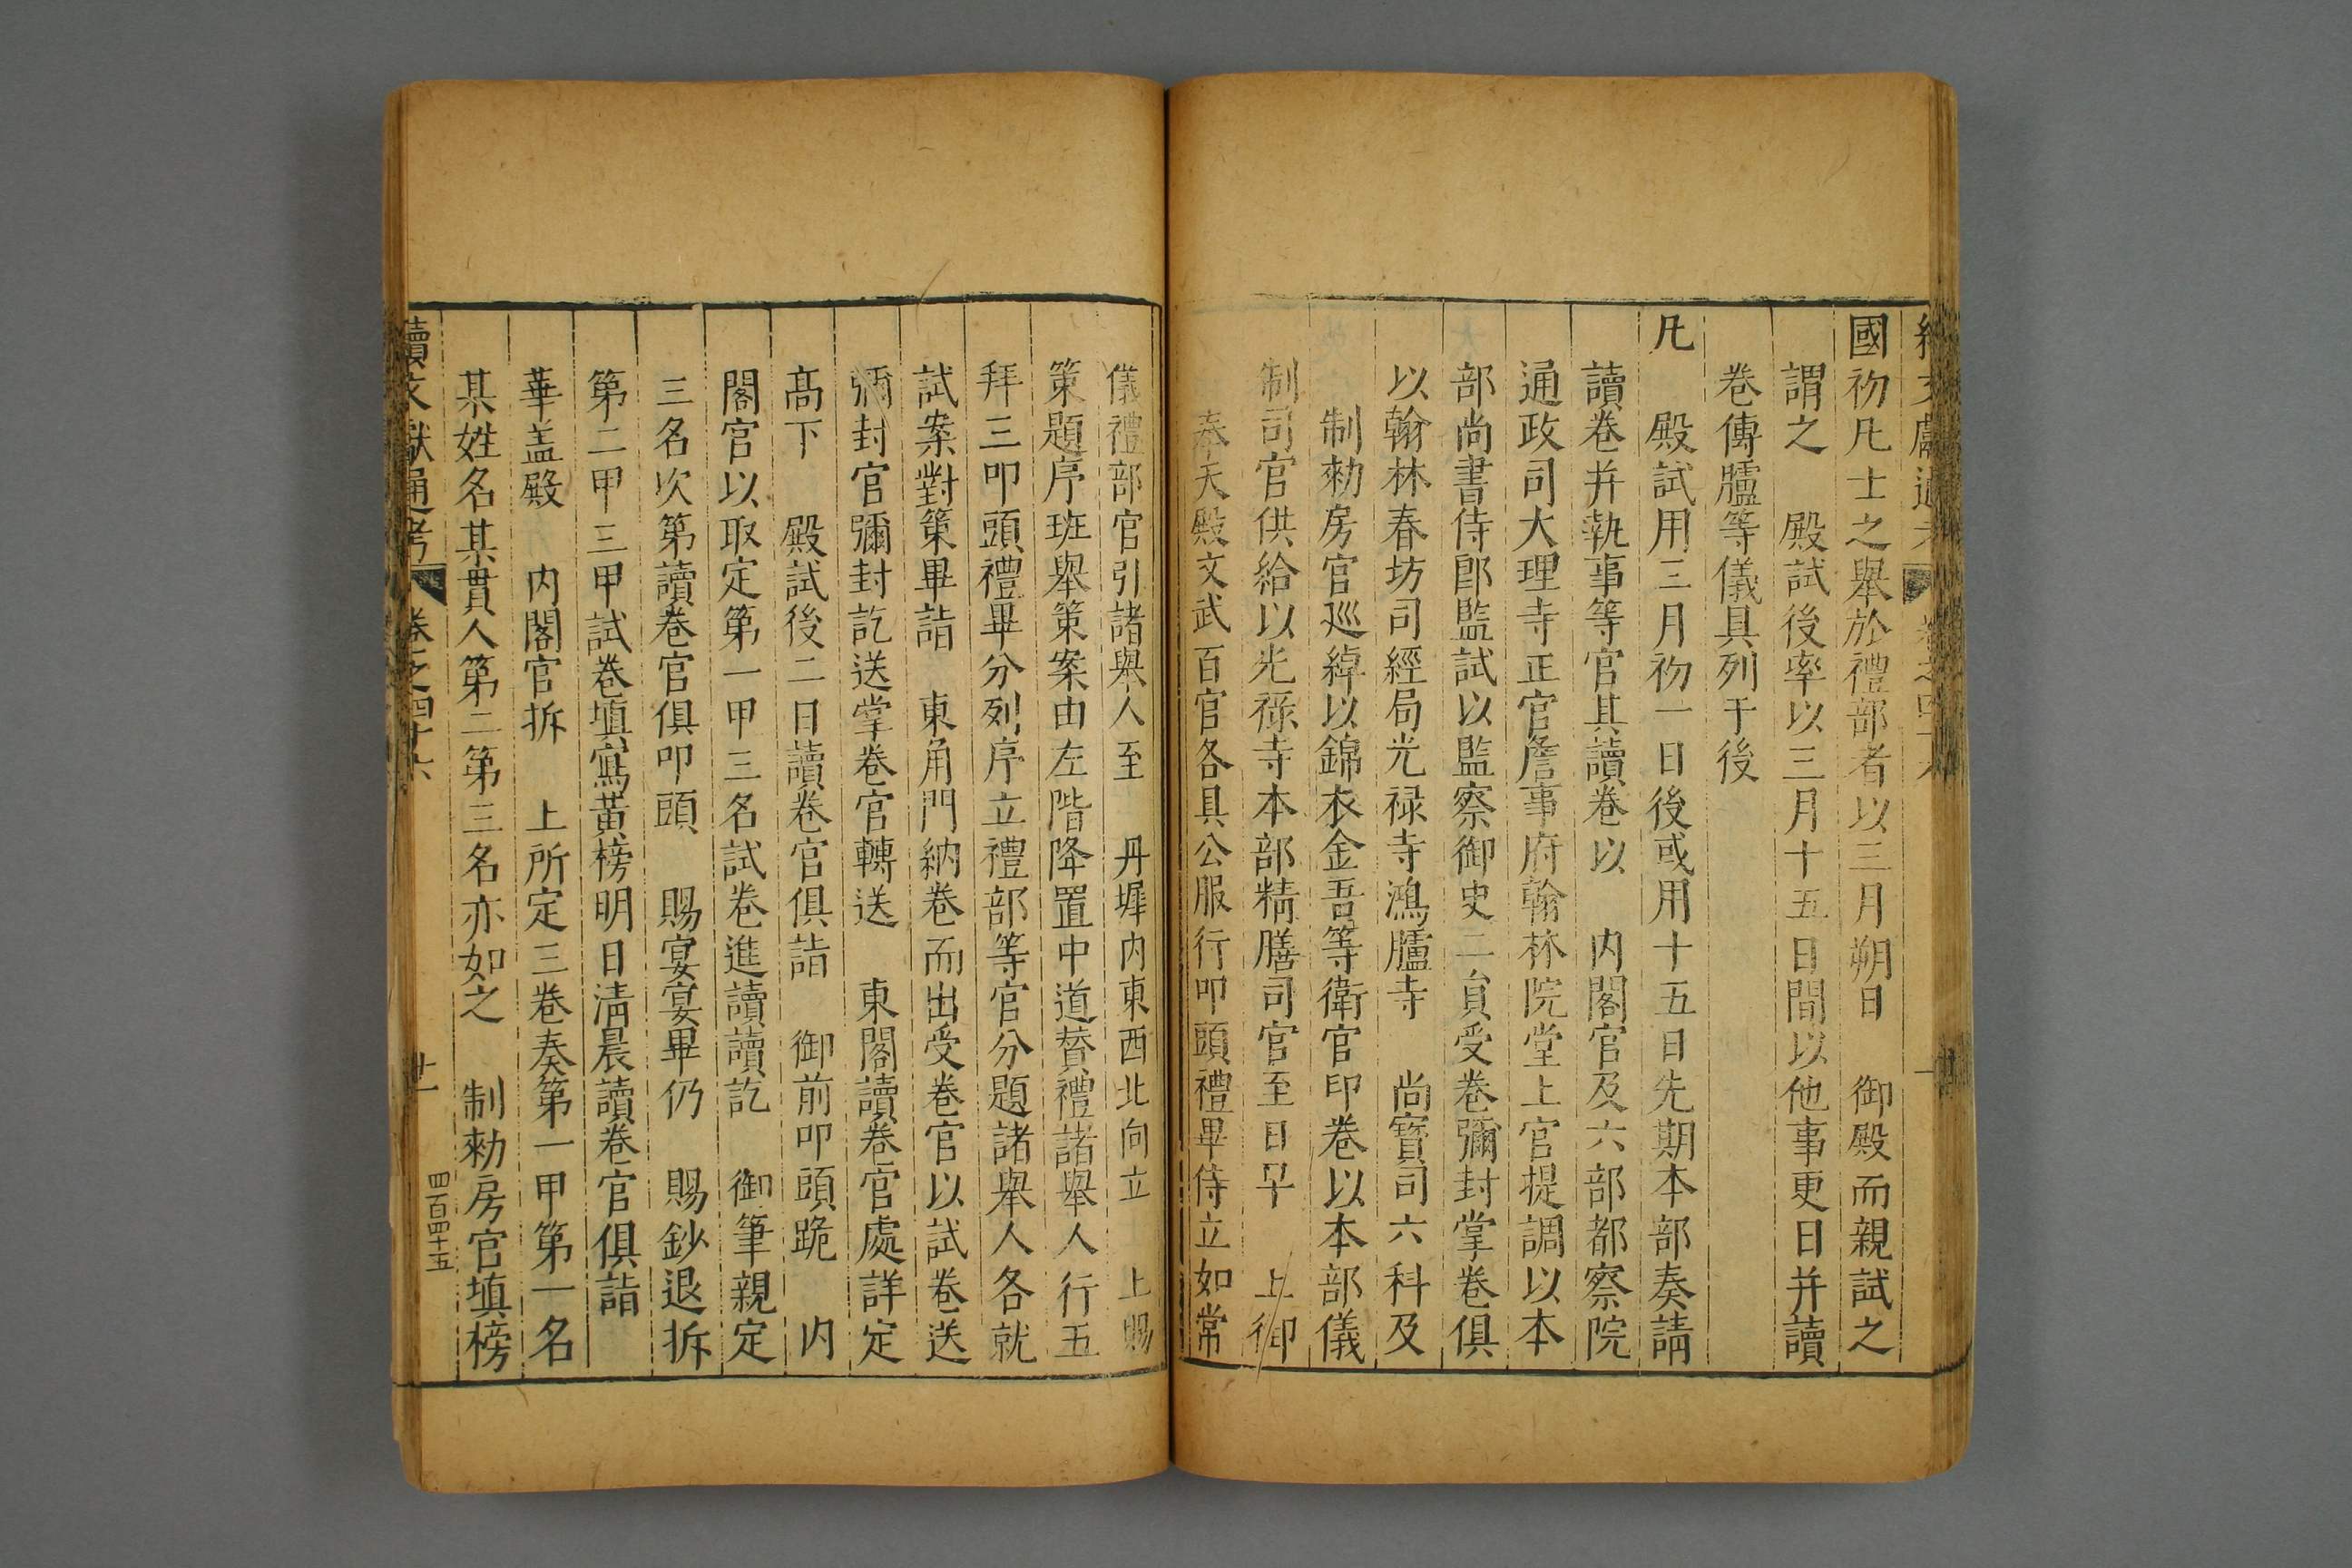 國初凡士之舉於禮部者以三月朔日　御殿而親試之
謂之　殿試後率以三月十五日間以他事更日并讀
卷傳臚等儀具列于後
凡　殿試用三月初一日後或用十五日先期本部奏請
讀卷并執事等官其讀卷以　内閣官及六部都察院
通政司大理寺正官詹事府翰林院堂上官提調以本
部尚書侍郎監試以監察御史二員受卷彌封掌卷俱
以翰林春坊司經局光禄寺鴻臚寺　尚寳司六科及
制勑房官巡綽以錦衣金吾等衛官印卷以本部儀
制司官供給以光祿寺本部精膳司官至日早　上御
奉天殿文武百官各具公服行叩頭禮畢侍立如常
儀禮部官引諸舉人至　丹墀内東西北向立　上賜
策題序班舉策案由左階降置中道賛禮諸舉人行五
拜三叩頭禮畢分列序立禮部等官分題諸舉人各就
試案對策畢詣　東角門納卷而出受卷官以試卷送
彌封官彌封訖送掌卷官轉送　東閣讀卷官處詳定
髙下　殿試後二日讀卷官俱詣　御前叩頭跪　内
閣官以取定第一甲三名試卷進讀讀訖　御筆親定
三名次第讀卷官俱叩頭　賜宴宴畢仍　賜鈔退拆
第二甲三甲試卷填寫黃榜明日清晨讀卷官俱詣
華盖殿　内閣官拆　上所定三卷奏第一甲第一名
某姓名某貫人第二第三名亦如之　制勑房官填榜
續文獻通考　卷之四十六　廿一
四百四十五